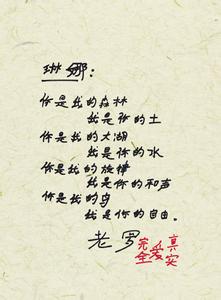 琳娜：
你是我的森林
我是你的土
你是我的大湖
我是你的水
你是我的旋律
我是你的和声
你是我的鸟
我是你的自由。
老罗
完全
爱
真实